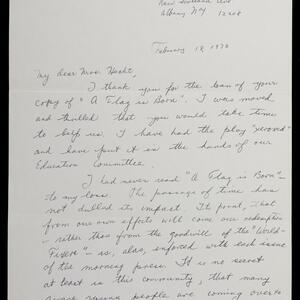 New Scotland Ave
Albany NY 12208
February 18, 1970
My dear Mrs. Hecht,
I thank you for the loan of your
copy of "A Flag is Born". I was moved
and thrilled that you would take time
to help us. I have had the play "xeroxed"
and have put it in the hands of our
Education Committee.
I had never read "A Flag is Born" -
to my loss. The passage of time has
not dulled its impact. Its point, that
from our own efforts will come our redemption
- rather than from the goodwill of the "World-
- is, alas, enforced with each issue
of the morning press. It is no secret
at least in this community, that many
young people are coming over to